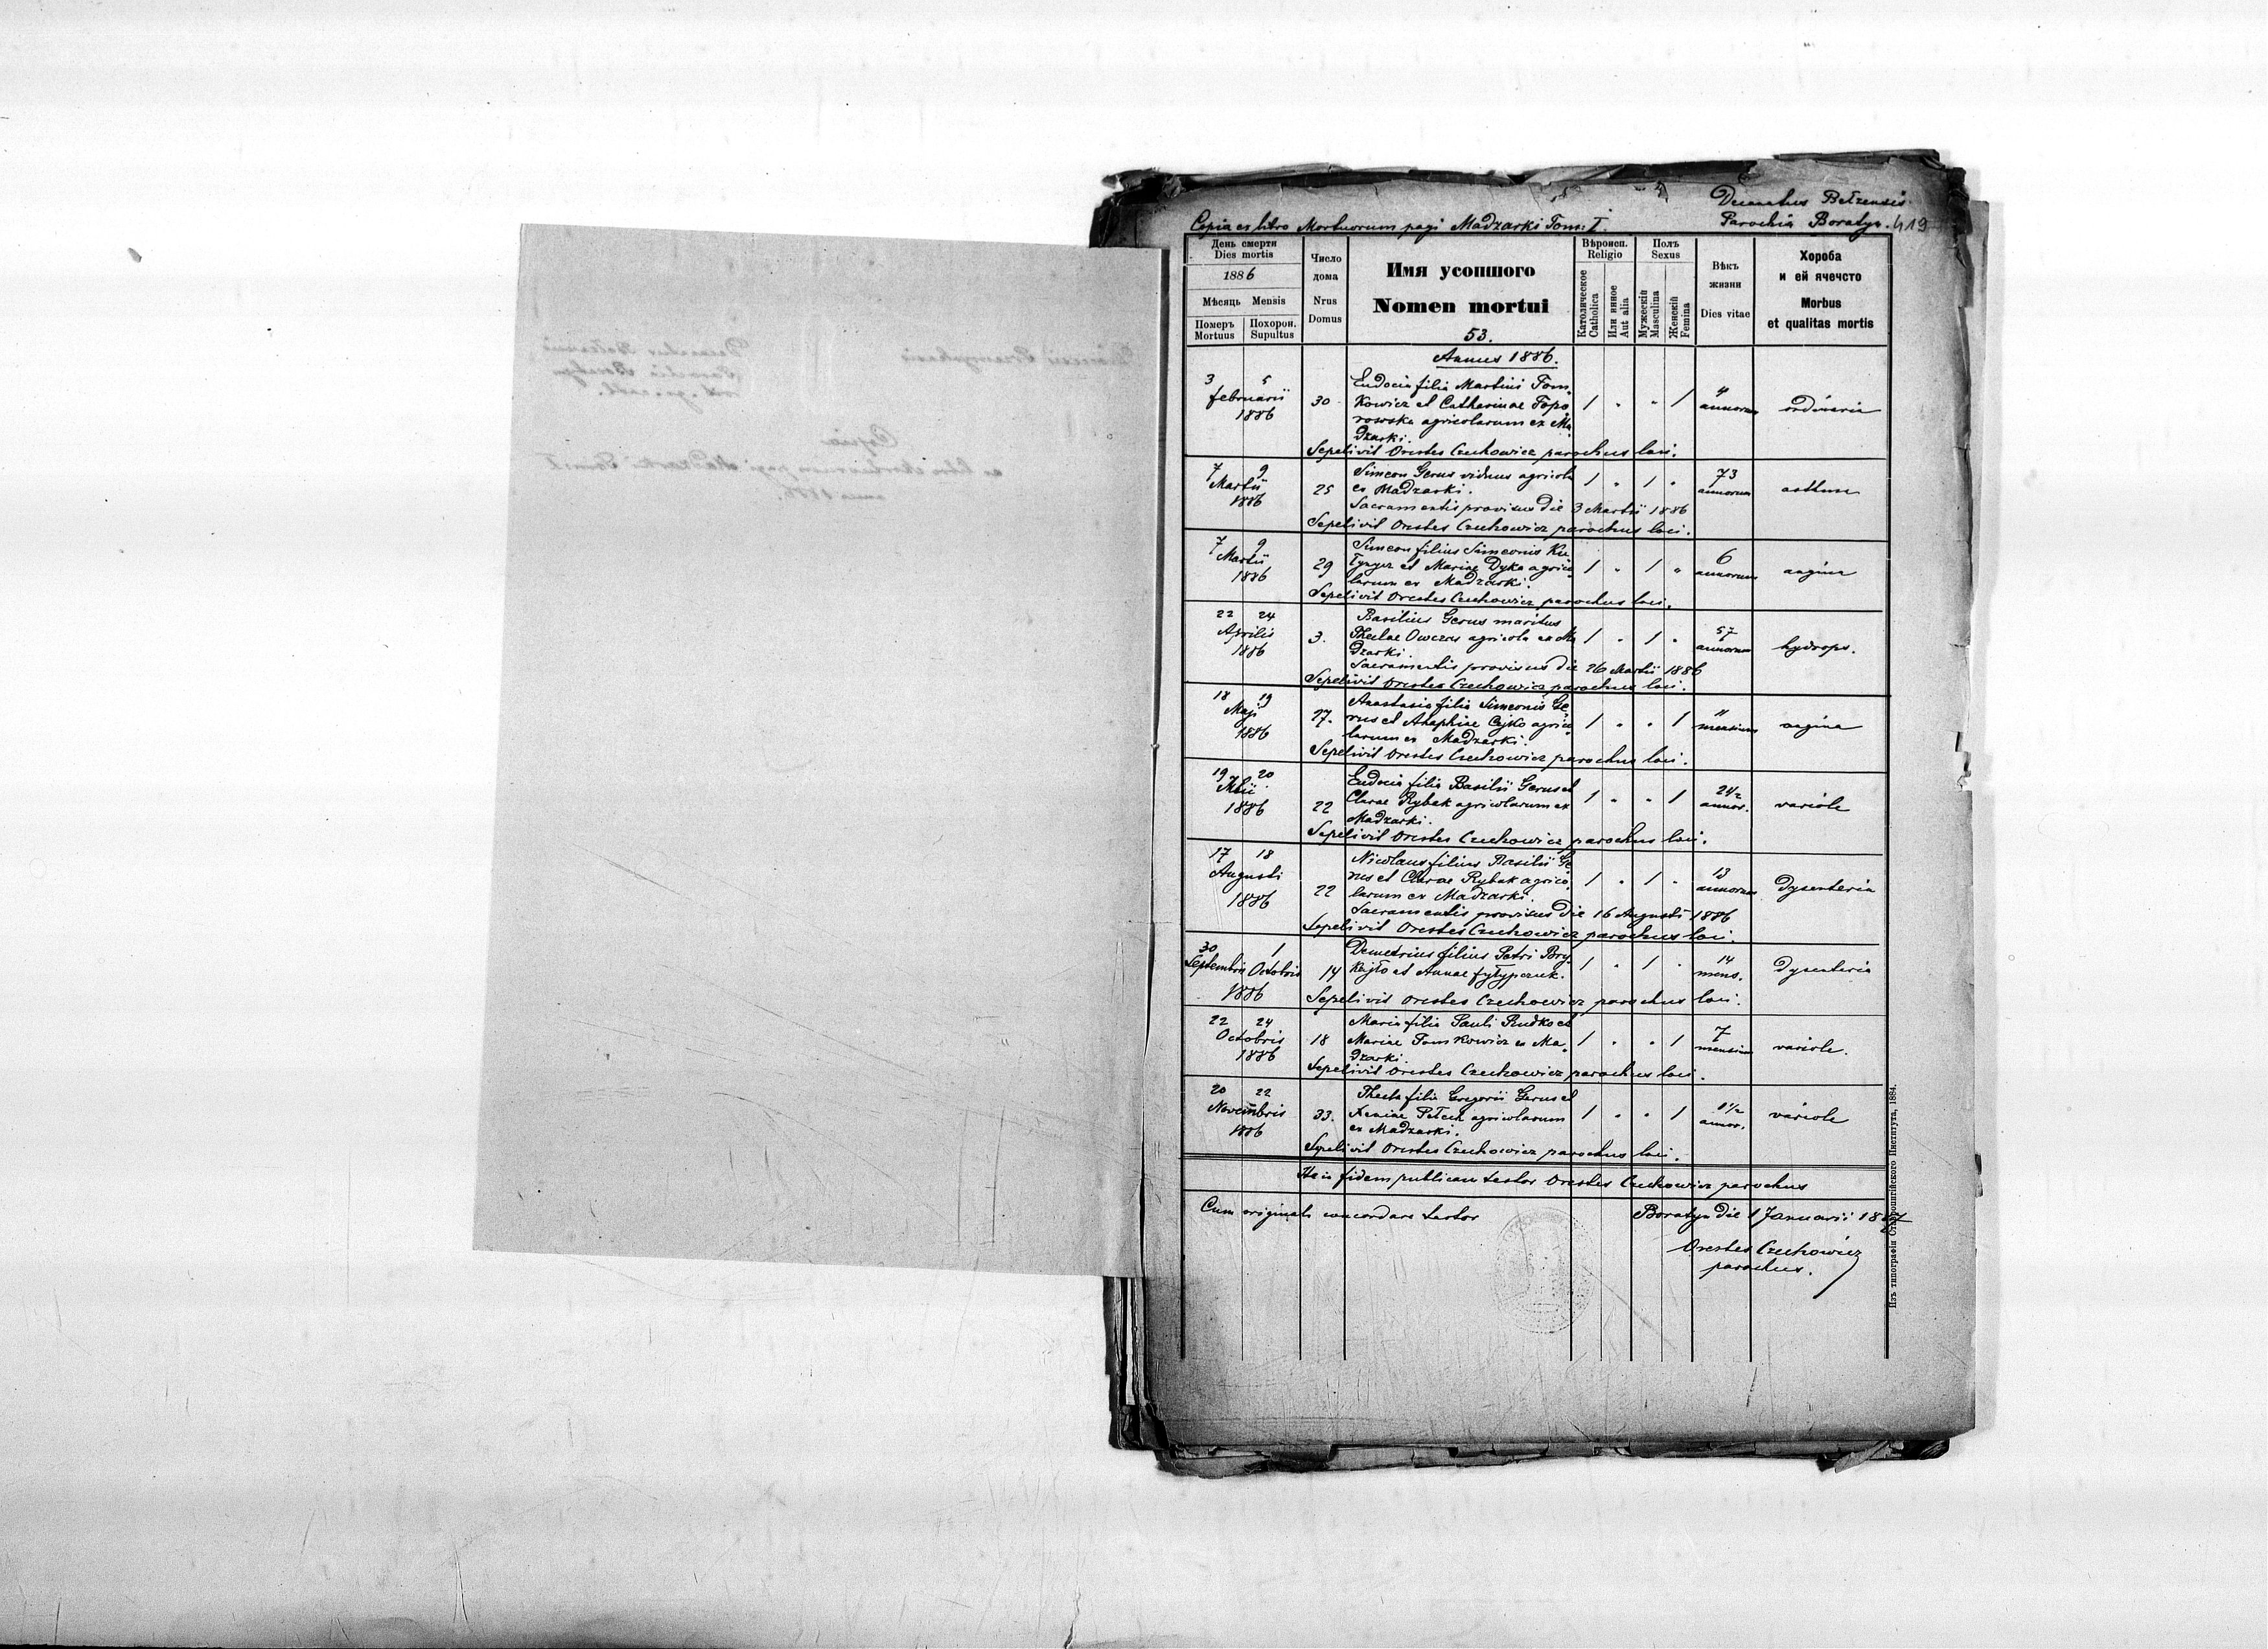 Decanatus Bełzensis
Copia ex libro Mortuorum pagi Madzarki Tom: I.
Parochia Boratyn. 419
День смерти
Dies mortis
1886
Мѣсяць Mensis
Померъ Похорон.
Mortuus Supultus
Число
дома
Nrus
Domus
Имя усопшого
Nomen mortui
53.
Вѣроисп.
Religio
Католическое
Catholica
Или инное
Aut alia
Полъ
Sexus
Мужескій
Masculina
Женскій
Femina
Вѣкъ
жизни
Dies vitae
Хороба
и ей ячечсто
Morbus
et qualitas mortis
Annus 1886.
3 5
februarii
1886
30
Eudocia filia Martini Tom-
kowicz et Catharinae Topo-
rowska agricolarum ex Ma
dzarki.
1 " " 1
4
annorum
ordinaria
Sepelivit Orestes Czechowicz parochus loci.
7 9
Martii
1886
25
Simeon Gerus viduus agricola
ex Madzarki.
1 " 1 "
73
annorum
asthma
Sacramentis provisus die 3 Martii 1886
Sepelivit Orestes Czechowicz parochus loci.
7 9
Martii
1886
29
Simeon filius Simeonis
et Mariae Dyka agrico-
larum ex Madzarki.
1 " 1 "
6
annorum
angina
Sepelivit Orestes Czechowicz parochus loci.
22 24
Aprilis
1886
3.
Basilius Gerus maritus
Theclae Owczar agricola ex Ma
dzarki.
1 " 1 "
57
annorum
hydrops.
Sacramentis provisus die 26 Martii 1886
Sepelivit Orestes Czechowicz parochus loci.
18 19
Maji
1886
27.
Anastasia filia Simeonis Ge
rus et Agaphiae Cyko agrico
larum ex Madzarki.
1 " " 1
11
mensium
angina
Sepelivit Orestes Czechowicz parochus loci.
19 20
1886
22
Eudocia filia Basilii Gerus et
Clarae Rybak agricolarum ex
Madzarki.
1 " " 1
2 1/2
annor.
variole
Sepelivit Orestes Czechowicz parochus loci.
17 18
Augusti
1886
22
Nicolaus filius Basilii Ge
rus et Clarae Rybak agrico
larum ex Madzarki.
1 " 1 "
13
annorum
Dysenteria
Sacramentis provisus die 16 Augusti 1886
Sepelivit Orestes Czechowicz parochus loci.
30 1
Septembris Octobris
1886
14
Demetrius filius Petri Bry
kajło et Annae
1 " 1 "
14
mens.
Dysenteria
Sepelivit Orestes Czechowicz parochus loci.
22 24
Octobris
1886
18
Maria filia Pauli Rudko et
Mariae Tomkowicz ex Ma-
dzarki.
1 " " 1
7
mensium
variole.
Sepelivit Orestes Czechowicz parochus loci.
20 22
Novembris
1886
33.
Thecla filia Gregorii Gerus et
Xeniae Petech agricolarum
ex Madzarki.
1 " " 1
1/2
annor.
variole
Sepelivit Orestes Czechowicz parochus loci.
fidem publicam testor Orestes Czechowicz parochus
Cum originali concordare testor
Boratyn die 1 Januarii 1887
Orestes Czechowicz
parochus.
Изъ типографіи Ставропигійского Института, 1884.